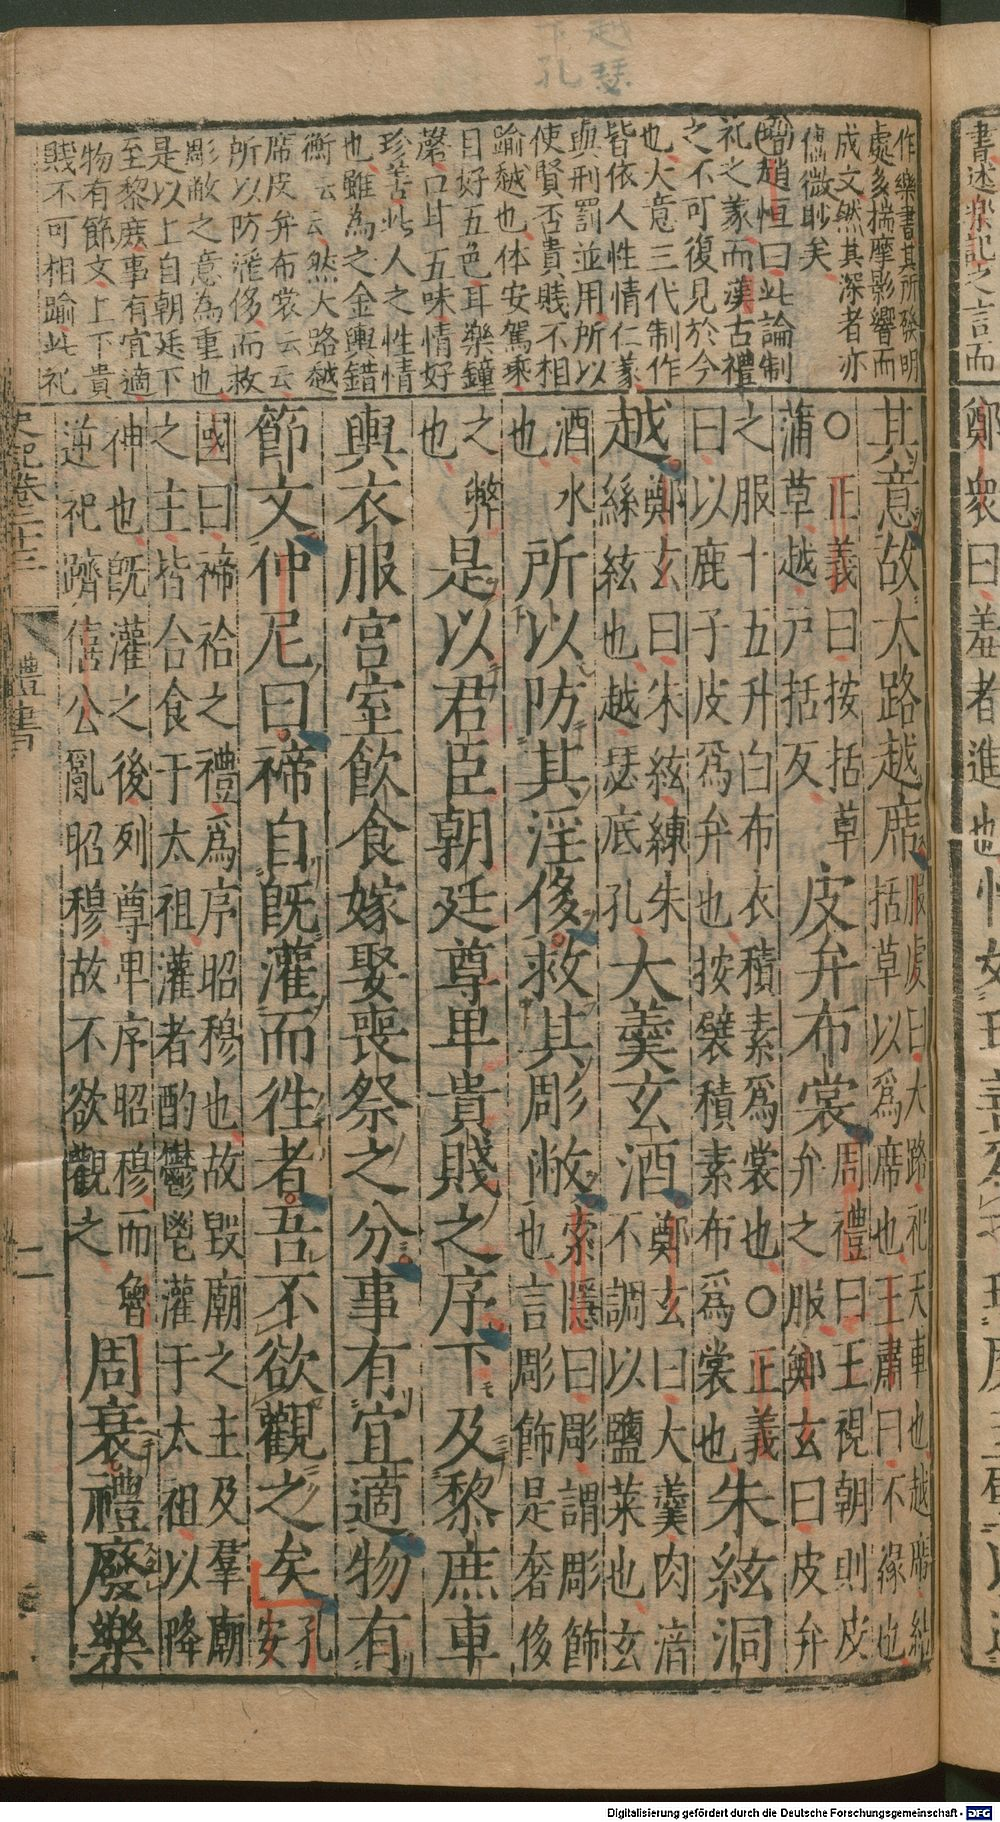 書述樂記之言而
鄭衆曰羞者進也
越瑟
下孔
作樂書其所發明
處多揣摩影響而
成文然其深者亦
微眇矣
增趙恒曰此論制
礼之義而漢古禮
之不可復見於今
也大意三代制作
皆依人性情仁義
與刑罰並用所以
使賢否貴賤不相
踰越也体安駕乘
目好五色耳樂鐘
磬口耳五味情好
珍善此人之性情
也雖為之金輿錯
衡云云然大路越
席皮弁布裳云云
所以防淫侈而救
彫敝之意為重也
是以上自朝廷下
至黎庶事有宜適
物有節文上下貴
賤不可相踰此礼
其意故大路越席服虔曰大路祀天車也越席結括草以爲席也王肅曰不緣也
○正義曰按括草蒲草越戸括反皮弁布裳周禮曰王視朝則皮弁之服鄭玄曰皮弁
之服十五升白布衣積素爲裳也○正義曰以鹿子皮爲弁也按襞積素布爲裳也朱絃洞
越鄭玄曰朱絃練朱絲絃也越瑟底孔大羹玄酒鄭玄曰大羹肉湆不調以鹽菜也玄
酒水也所以防其淫侈救其彫敝索隱曰彫謂彫飾也言彫飾是奢侈
之弊也是以君臣朝廷尊卑貴賤之序下及黎庶車
輿衣服宮室飲食嫁娶喪祭之分事有宜適物有
節文仲尼曰禘自既灌而徃者吾不欲觀之矣孔安
國曰禘祫之禮爲序昭穆也故毀廟之主及羣廟之主皆合食于太祖灌者酌鬱鬯灌于太祖以降
神也既灌之後列尊卑序昭穆而魯逆祀躋僖公亂昭穆故不欲觀之周衰禮廢樂
史記卷二十三
禮書
二
Digitalisierung gefördert durch die Deutsche Forschungsgemeinschaft - DFG